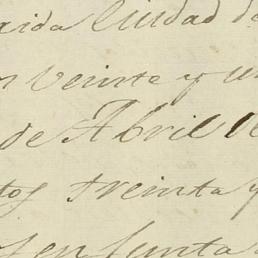 rida Ciudad de
n veinte y un
de Abril
tos treinta y
en Junta